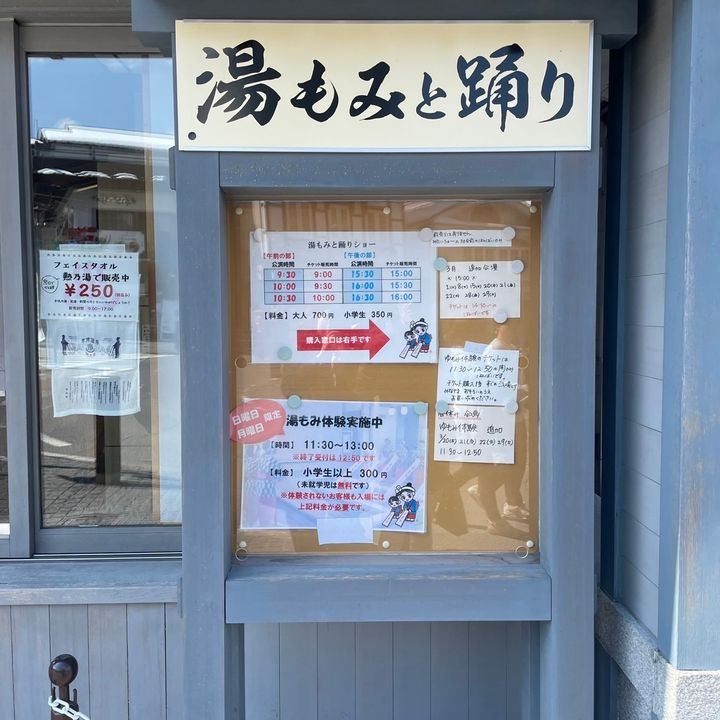 湯もみと踊り
フェイスタオル
熱乃湯で販売中
¥250(税込)
販売時間 9:00~17:00
湯もみと踊りショー
【午前の部】 【午後の部】
公演時間 チケット販売時間 公演時間 チケット販売時間
9:30 9:00 15:30 15:00
10:00 9:30 16:00 15:30
10:30 10:00 16:30 16:00
【料金】大人 700円 小学生 350円
購入窓口は右手です
3月 追加公演
日曜日
月曜日
限定
湯もみ体験実施中
【時間】 11:30~13:00
※終了受付は12:50です
【料金】 小学生以上 300円
(未就学児は無料です)
※体験されないお客様も入場には
上記料金が必要です。
ゆもみ体験のチケットは
11:30~12:50の間
ゆもみ体験 追加
11:30~12:50